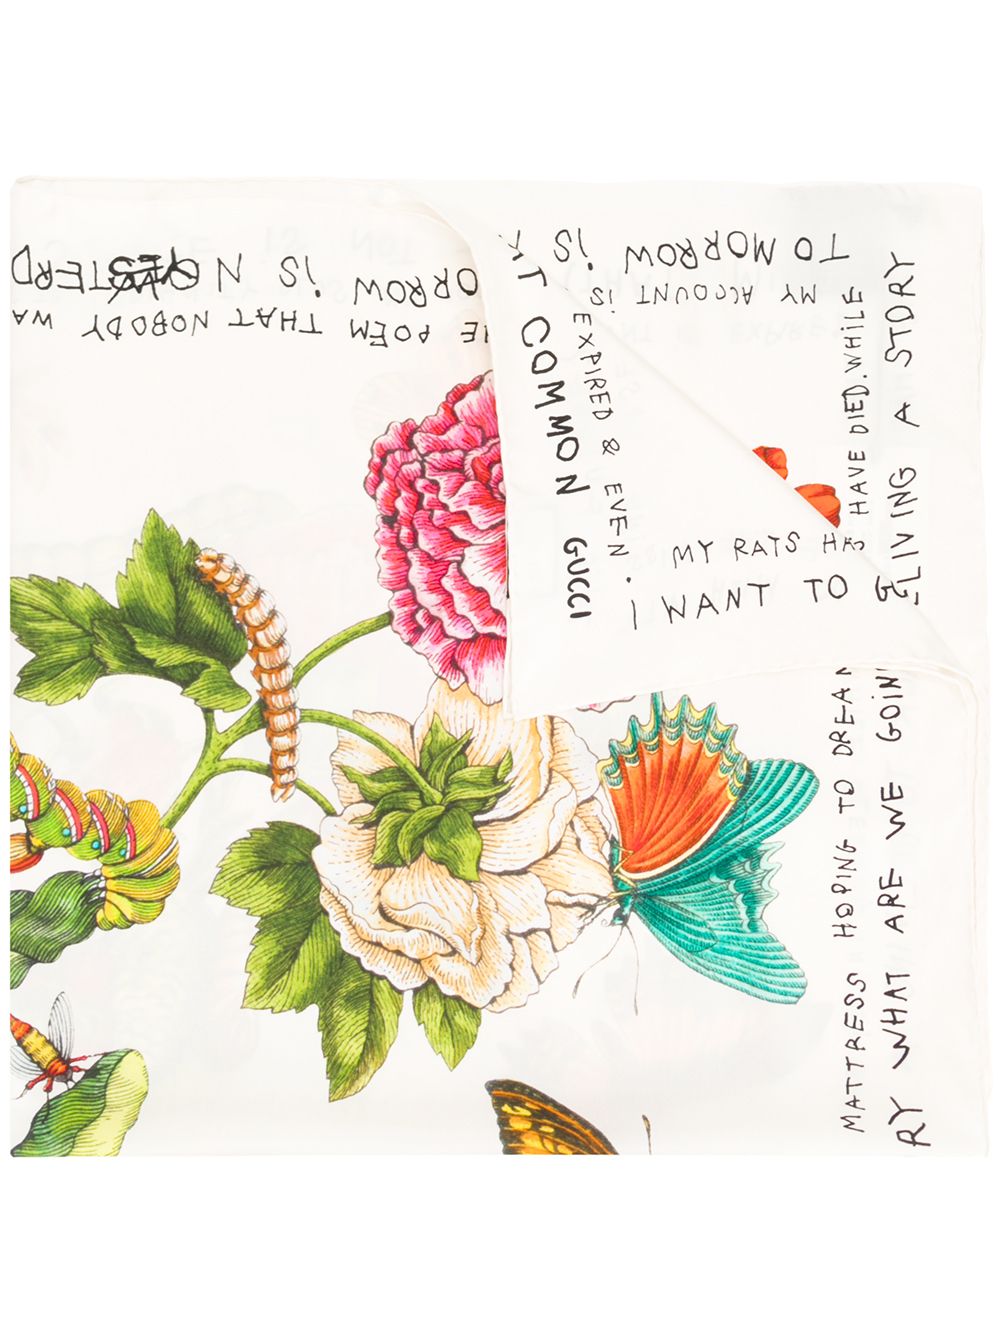 TOMORROW IS
MY ACCOUNT IS
EXPIRED & EVEN.
COMMON GUCCI
ORROW IS N
POEM THAT NOBODY WA
HAVE DIED. WHILE
LIVING A STORY
MY RATS
I WANT TO
MATTRESS HOPING TO DREAM
RY WHAT ARE WE GOIN